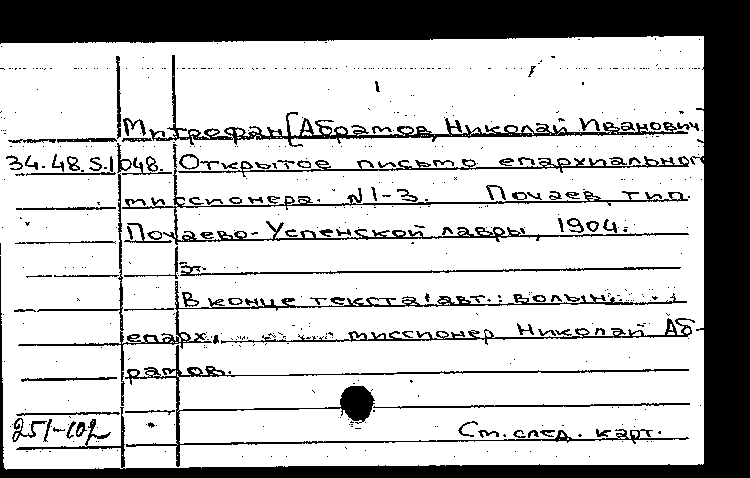 Митрофан [Абрамов, Николай Иванович]
34.48.5.1048. Открытое письмо епархиального
миссионера. №1-3. Почаев, тип.
Почаево-Успенской лавры, 1904.
3т.
В конце текста: авт.: волын.
епарх. миссионер Николай Аб-
рамов.
251-102
См. след. карт.